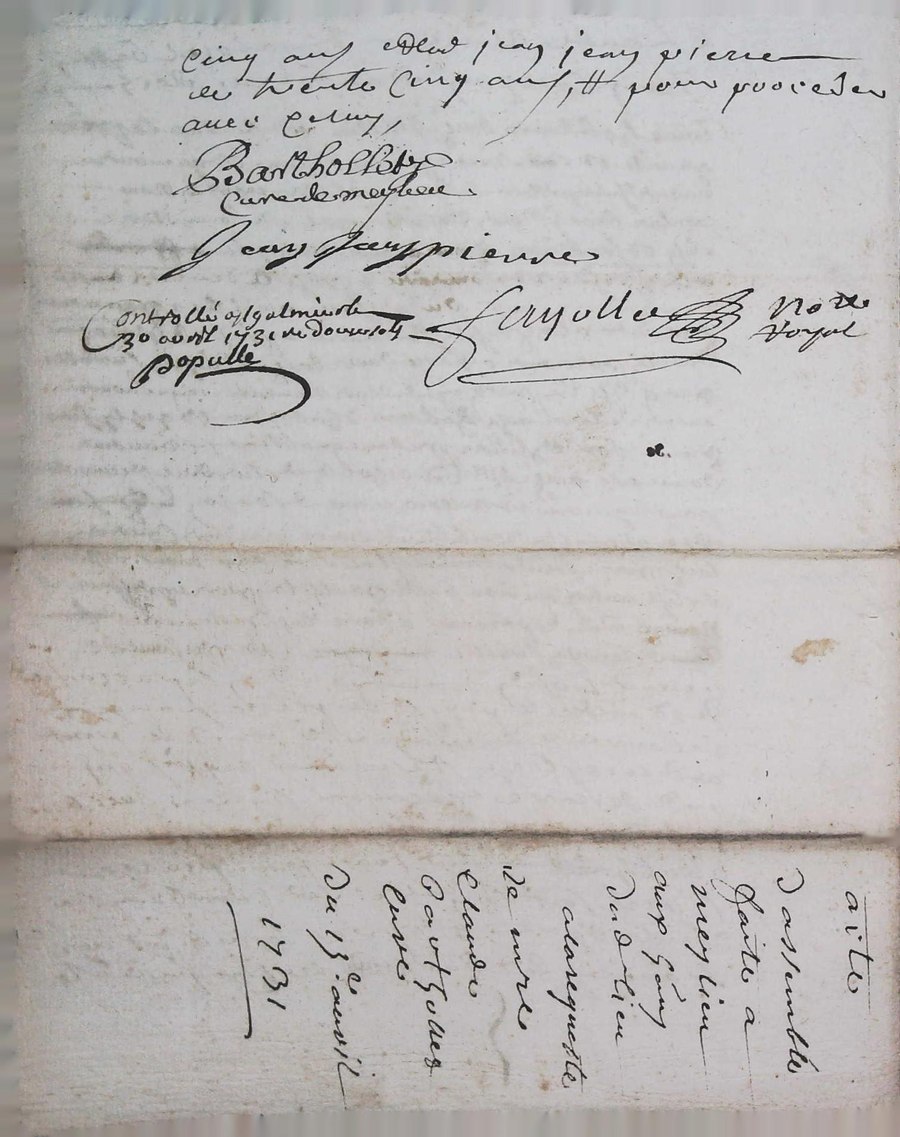 cinq ans jean jean pierre
de trente cinq ans, pour proceder
avec
Barthollety
Cure de meylieu.
Jean Janpierre
Controllé a st galmier le
30 avril 1731 Reçu douze s
populle
Not re
Royal
acte
dassemblé
faitte a
meylieu
aux
dud lieu
ala requeste
de mre
Claude
Barthollet
Curé
Du 15e avril
1731